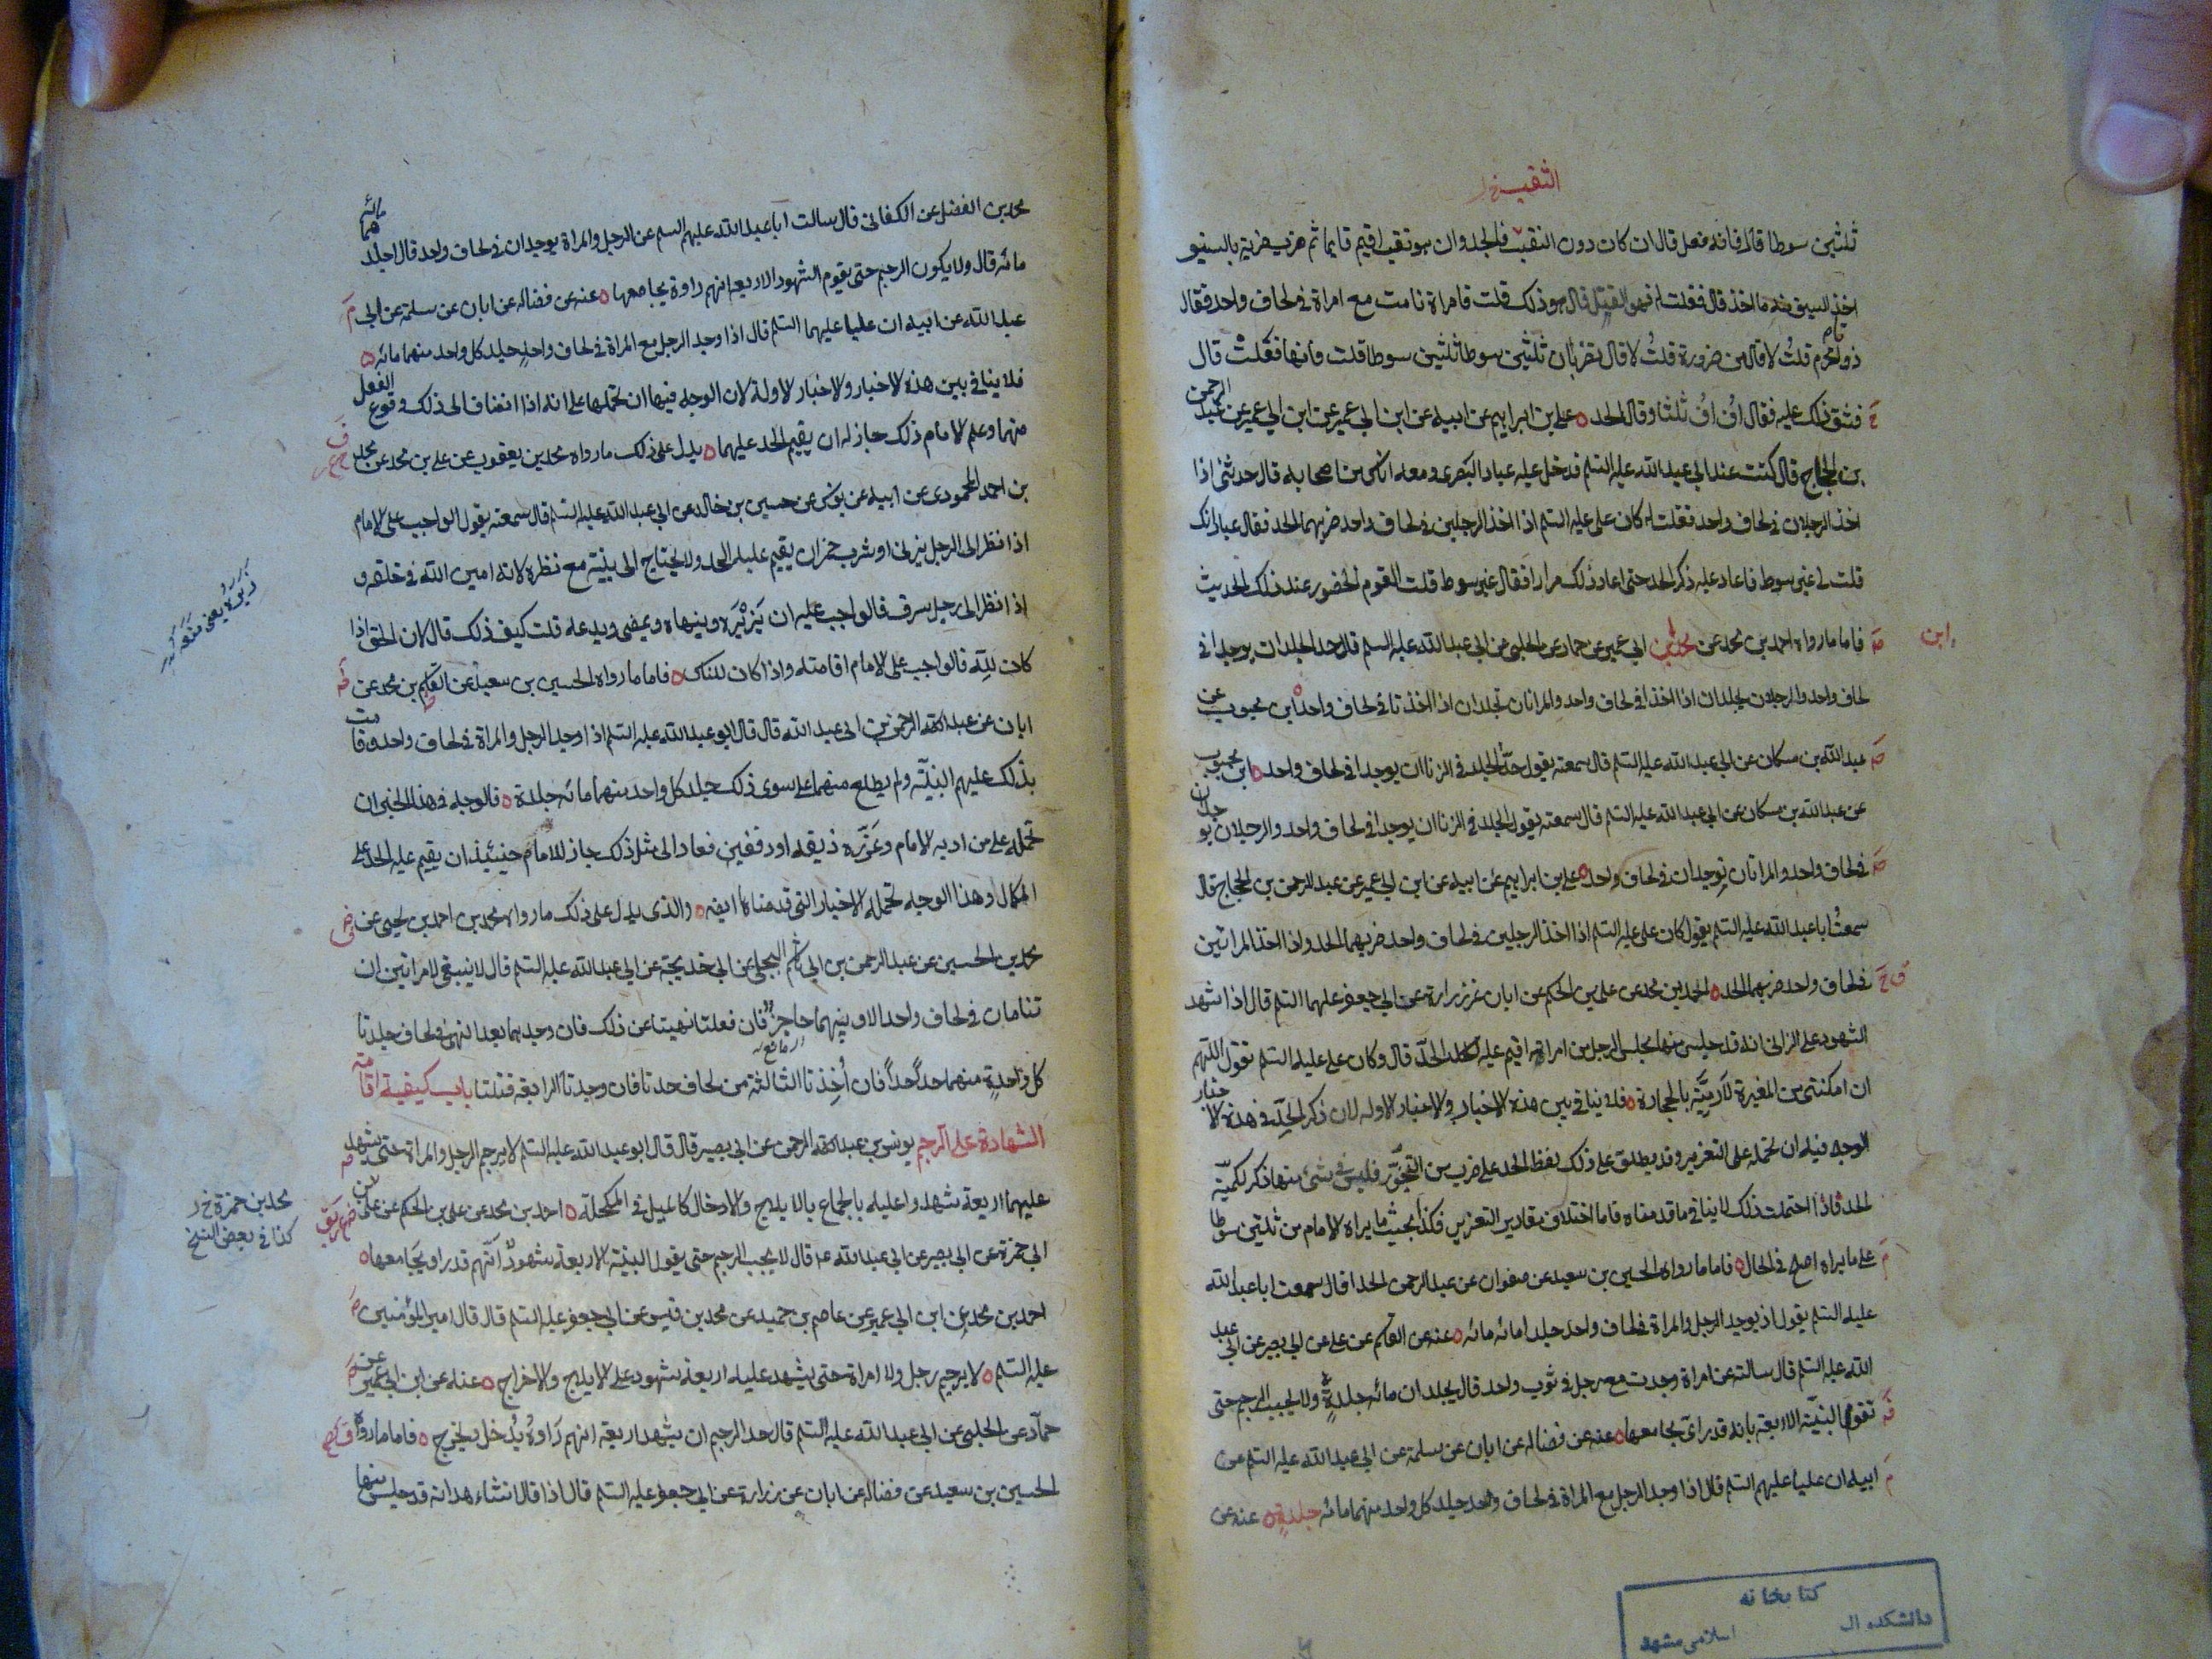 الثقب خ ر
ثلثين سوطا قال فانه فعل قال ان كان دون النقب فالجلد وان هو نقب اقيم قايما ثم ضرب ضربة بالسيف
اخذ السيف منه ما اخذ قال فقلت له فهو القتل قال هو ذلك قلت فامراة نامت مع امراة في لحاف واحد فقال
ذواتا محرم قلت لا قال من ضرورة قلت لا قال تضربان ثلثين سوطا ثلثين سوطا قلت فانها فعلت قال
فشق ذلك عليه فقال اف اف ثلثا وقال الحد علي بن ابراهيم عن ابيه عن ابن ابي عمير عن عبد الرحمن
بن الحجاج قال كنت عند ابي عبد الله عليه السلم فدخل عليه عباد البصري ومعه اناس من اصحابه قال حدثني اذا
اخذ الرجلان في لحاف واحد فقلت له كان علي عليه السلم اذا اخذ الرجلين في لحاف واحد ضربهما الحد فقال عباد انك
قلت لي غير سوط فاعاد عليه ذكر الحد حتى اعاد ذلك مرارا فقال غير سوط قلت القوم الحضور عند ذلك الحديث
ابن
فاما ما رواه احمد بن محمد عن محمد بن ابي عمير عن حماد عن الحلبي عن ابي عبد الله عليه السلم قال حد الجلد ان يوجدا في
لحاف واحد والرجلان يجلدان اذا اخذا في لحاف واحد والمراتان تجلدان اذا اخذتا في لحاف واحد ابن محبوب عن
عبد الله بن مسكان عن ابي عبد الله عليه السلم قال سمعته يقول حد الجلد في الزنا ان يوجدا في لحاف واحد ابن محبوب
عن عبد الله بن مسكان عن ابي عبد الله عليه السلم قال سمعته يقول الجلد في الزنا ان يوجدا في لحاف واحد والرجلان يوجدان
في لحاف واحد والمراتان توجدان في لحاف واحد علي بن ابراهيم عن ابيه عن ابن ابي عمير عن عبد الرحمن بن الحجاج قال
سمعت ابا عبد الله عليه السلم يقول كان علي عليه السلم اذا اخذ الرجلين في لحاف واحد ضربهما الحد واذا اخذ المراتين
في لحاف واحد ضربهما الحد احمد بن محمد عن علي بن الحكم عن ابان عن زرارة عن ابي جعفر عليهما السلم قال اذا شهد
الشهود على الزاني انه قد جلس منها مجلس الرجل من امراته اقيم عليه الحد قال وكان علي عليه السلم يقول اللهم
ان امكنتني من المغيرة لارمينه بالحجارة فلا ينافي بين هذه الاخبار والاخبار الاوله لان ذكر الحد في هذه الاخبار
الوجه فيه ان نحمله على التعزير وقد يطلق على ذلك لفظ الحد على ضرب من التجوز فليس في شئ منها ذكر لكمية
الحد فاذا احتملت ذلك لا ينافي ما قدمناه فاما اختلاف مقادير التعزير فكذا بحيث ما يراه الامام من ثلثين سوطا
على ما يراه اصلح في الحال فاما ما رواه الحسين بن سعيد عن صفوان عن عبد الرحمن الحذا قال سمعت ابا عبد الله
عليه السلم يقول اذ يوجد الرجل والمراة في لحاف واحد جلدا مائه مائه عنه عن القسم عن علي عن ابي بصير عن ابي عبد
الله عليه السلم قال سالته عن امراة وجدت مع رجل في ثوب واحد قال يجلدان مائه جلدة ولا يجب الرجم حتى
تقوم البينة الاربعة بانه قد راى يجامعها عنه عن فضاله عن ابان عن سلمة عن ابي عبد الله عليه السلم عن
ابيه ان عليا عليهم السلم قال اذا وجد الرجل مع المراة في لحاف واحد جلد كل واحد منهما مائه جلدة عنه عن
كتابخانه
دانشكده ال
اسلامى مشهد
محمد بن الفضل عن الكنانى قال سالت ابا عبد الله عليهم السلم عن الرجل والمراة يوجدان في لحاف واحد قال اجلدهما مائه
مائه قال ولا يكون الرجم حتى يقوم الشهود الاربعه انهم راوه يجامعها عنه عن فضاله عن ابان عن سلمة عن ابي
عبد الله عن ابيه ان عليا عليهما السلم قال اذا وجد الرجل مع المراة في لحاف واحد جلد كل واحد منهما مائه
فلا ينافي بين هذه الاخبار والاخبار الاولة لان الوجه فيها ان نحملها على انه اذا انضاف الى ذلك وقوع الفعل
منهما وعلم الامام ذلك جاز له ان يقيم الحد عليهما يدل على ذلك ما رواه محمد بن يعقوب عن علي بن محمد عن محمد
بن احمد المحمودى عن ابيه عن يونس عن حسين بن خالد عن ابي عبد الله عليه السلم قال سمعته يقول الواجب على الامام
اذا نظر الى الرجل يزنى او شرب خمر ان يقيم عليه الحد ولا يحتاج الى بينة مع نظره لانه امين الله في خلقه و
اذا نظر الى رجل سرق فالواجب عليه ان يزبره وينهاه ويمضى ويدعه قلت كيف ذلك قال لان الحق اذا
كان لله فالواجب على الامام اقامته واذا كان للناس فاما ما رواه الحسين بن سعيد عن القسم بن محمد عن
ابان عن عبد الرحمن بن ابي عبد الله قال قال ابو عبد الله عليه السلم اذا وجد الرجل والمراة في لحاف واحد وقامت
بذلك عليهم البينة ولم يطلع منهما على سوى ذلك جلد كل واحد منهما مائه جلدة فالوجه في هذا الخبر ان
نحمله على من ادبه الامام وعزره دفعة او دفعتين فعاد الى مثل ذلك جاز للامام حينئذ ان يقيم عليه الحد على
الكمال وهذا الوجه تحمله الاخبار التي قدمناها ايضا والذى يدل على ذلك ما رواه محمد بن احمد بن يحيى عن
محمد بن الحسين عن عبد الرحمن بن ابي هاشم البجلى عن ابي خديجة عن ابي عبد الله عليه السلم قال لا ينبغى لامراتين ان
تنامان في لحاف واحد الا وبينهما حاجز فان فعلتا نهيتا عن ذلك فان وجدهما بعد النهى في لحاف جلدتا
كل واحدة منهما حدا حدا فان اخذتا الثالثة من لحاف حدتا فان وجدتا الرابعة قتلتا باب كيفية اقامة
الشهادة على الرجم يونس بن عبد الرحمن عن ابي بصير قال قال ابو عبد الله عليه السلم لا يرجم الرجل والمراة حتى يشهد
عليهما اربعة شهداء عليه بالجماع بالايلاج والادخال كالميل في المكحلة احمد بن محمد عن علي بن الحكم عن علي بن
محمد بن حمزة خ ر
كذا في بعض النسخ
ابي حمزة عن ابي بصير عن ابي عبد الله ع قال لا يجب الرجم حتى يقول البينة الاربعة شهود انهم قد راوه يجامعها
احمد بن محمد عن ابن ابي عمير عن عاصم بن حميد عن محمد بن قيس عن ابي جعفر عليه السلم قال قال امير المؤمنين
عليه السلم لا يرجم رجل ولا امراة حتى يشهد عليه اربعة شهود على الايلاج والاخراج عنه عن ابن ابي عمير عن
حماد عن الحلبى عن ابي عبد الله عليه السلم قال حد الرجم ان يشهد اربعة انهم راوه يدخل ويخرج فاما ما رواه
الحسين بن سعيد عن فضاله عن ابان عن زرارة عن ابي جعفر عليه السلم قال اذا قال الشاهد انه قد جلس منها